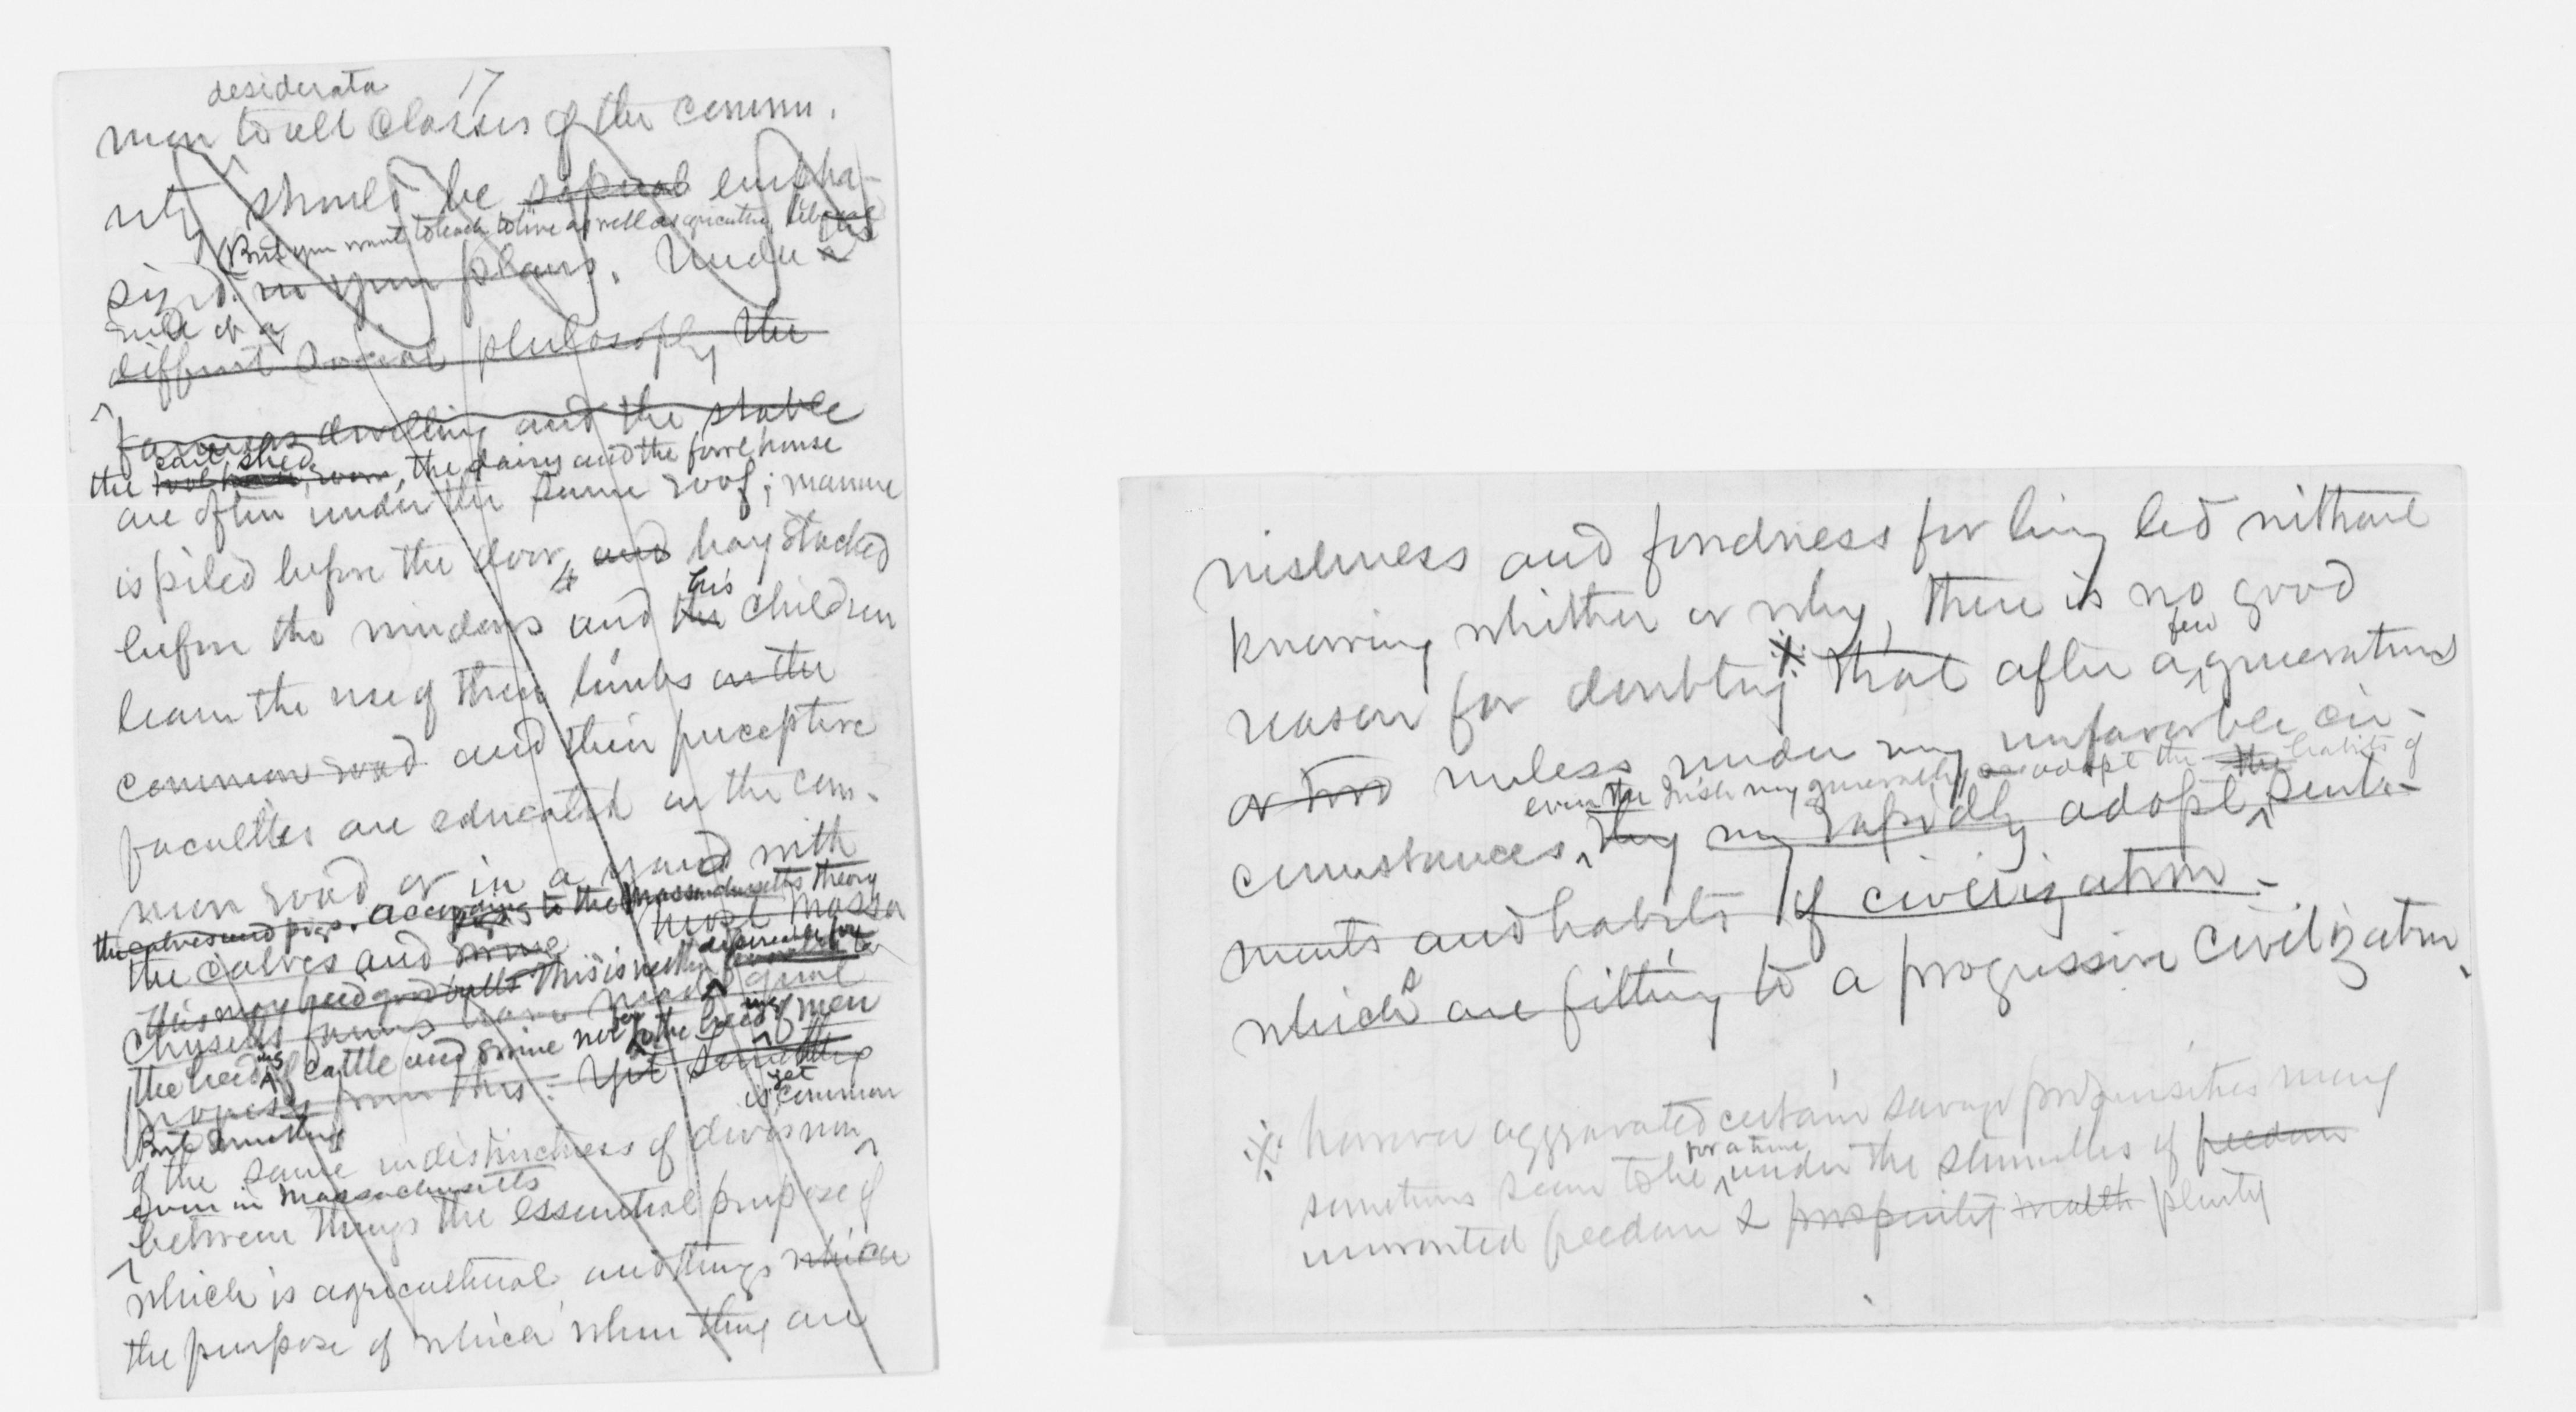 desiderata 17
mon to all classes of the commu.
nity should be signal empha-
But you want to teach to live as well as agriculture
sized in your plans. Under a
rule of a
different social philosophy the
farmers dwelling and the stable
the shed, the dairy and the house
are often under the same roof; manure
is piled before the door, and hay stacked
before the windows and the his children
learn the use of their limbs on the
common road and their perceptive
faculties are educated on the com-
mon road or in a yard with
the calves and pigs. according to the Massachusetts theory
the calves and swine Most Massa
this may breed good bulls This is neither desirable for
chusetts farms have made good
the breeding of cattle and swine nor for the breeding of men
progress from this. Yet something
But something is yet common
of the same indistinctness of division
even in Massachusetts
between things the essential purpose of
which is agricultural and things which
the purpose of which when they are
nishness and fondness for being led without
knowing whither or why, there is no good
reason for doubting that after a few generations
or two unless under very unfavorable cir-
even the Irish may generally adopt the the habits of
cumstances, they may rapidly adopt senti-
ments and habits of civilization.
which are fitting to a progressive civilization.
however aggravated certain savage propensities may
sometimes seem to be for a time under the stimulus of freedom
unwonted freedom & prosperity wealth plenty